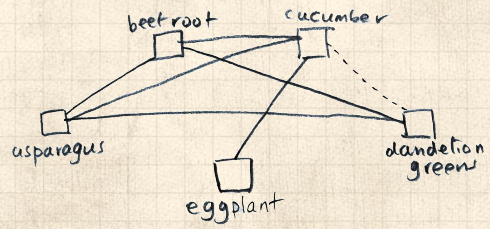 beetroot
cucumber
asparagus
dandelion
greens
eggplant